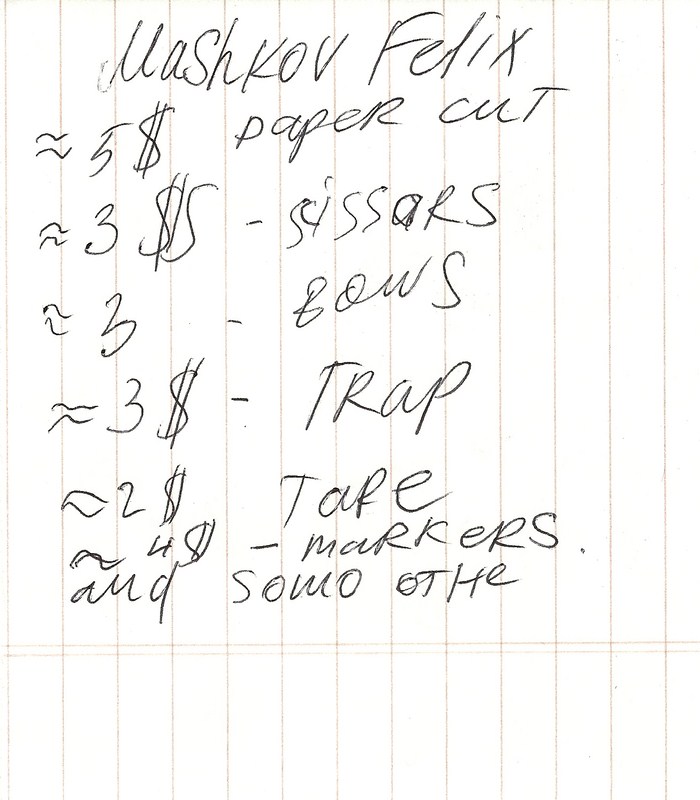 Mashkov Felix
≈ 5$ paper cut
≈ 3 $5 - sissars
≈ 3 - bows
≈ 3 $ - Trap
≈ 2 $ Tape
≈ 4$ - markers.
and somo othe